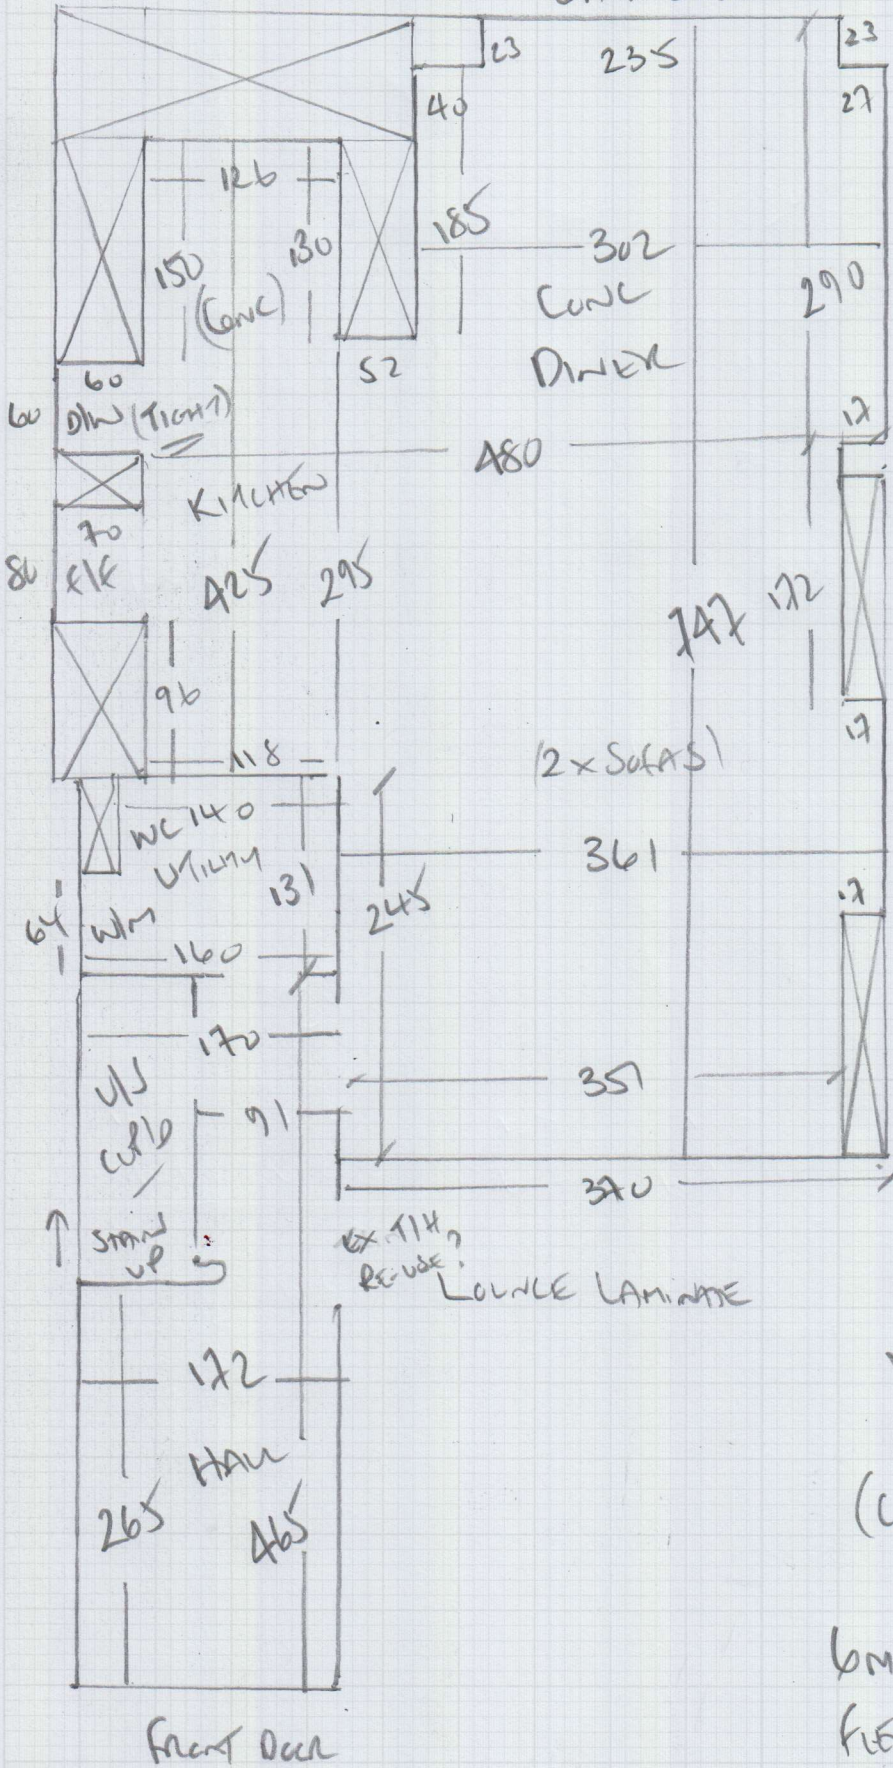 23
235
23
40
27
126
185
302
150
130
(CONC)
CONC
290
DINER
52
60
60
D/W (TIGHT)
17
480
KITCHEN
70
80
F/F
425
295
747
172
96
17
118
(2 x SOFAS)
WC 140
UTILITY
131
361
245
17
64
W/M
160
170
U/S
351
CUP'D
91
370
STAIRS
UP
EX. T/H
RE-USE?
LOUNGE LAMINATE
172
HALL
265
465
(
6M
FLE
FRONT DOOR